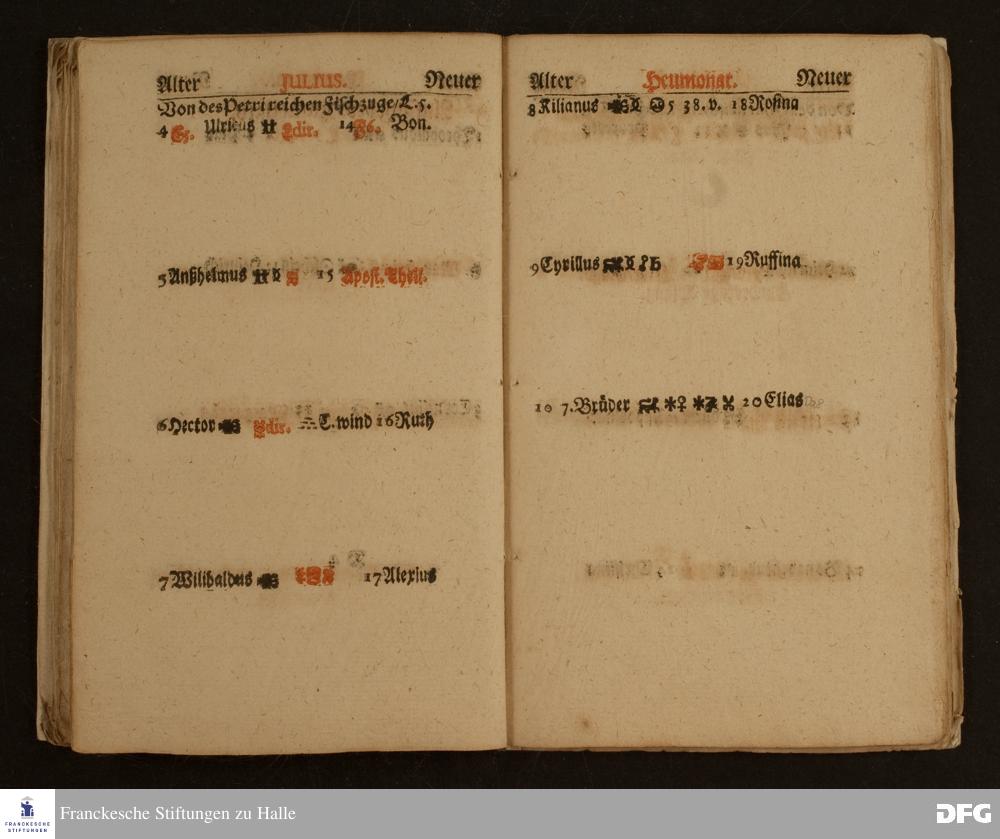 Alter JULIUS. Neuer
Von des Petri reichen Fischzuge/L. 5.
4 Ulricus ♊ dir. 14 F6. Bon.
5 Anßhelmus ♊ 15 Apost. Theil.
6 Hector dir. T. wind 16 Ruth
7 Wilibaldus 17 Alexius
Alter Heumonat. Neuer
8 Kilianus 5 38. v. 18 Rosina
9 Cyrillus 19 Ruffina
10 7. Brüder 20 Elias
FRANCKESCHE
STIFTUNGEN
Franckesche Stiftungen zu Halle
DFG